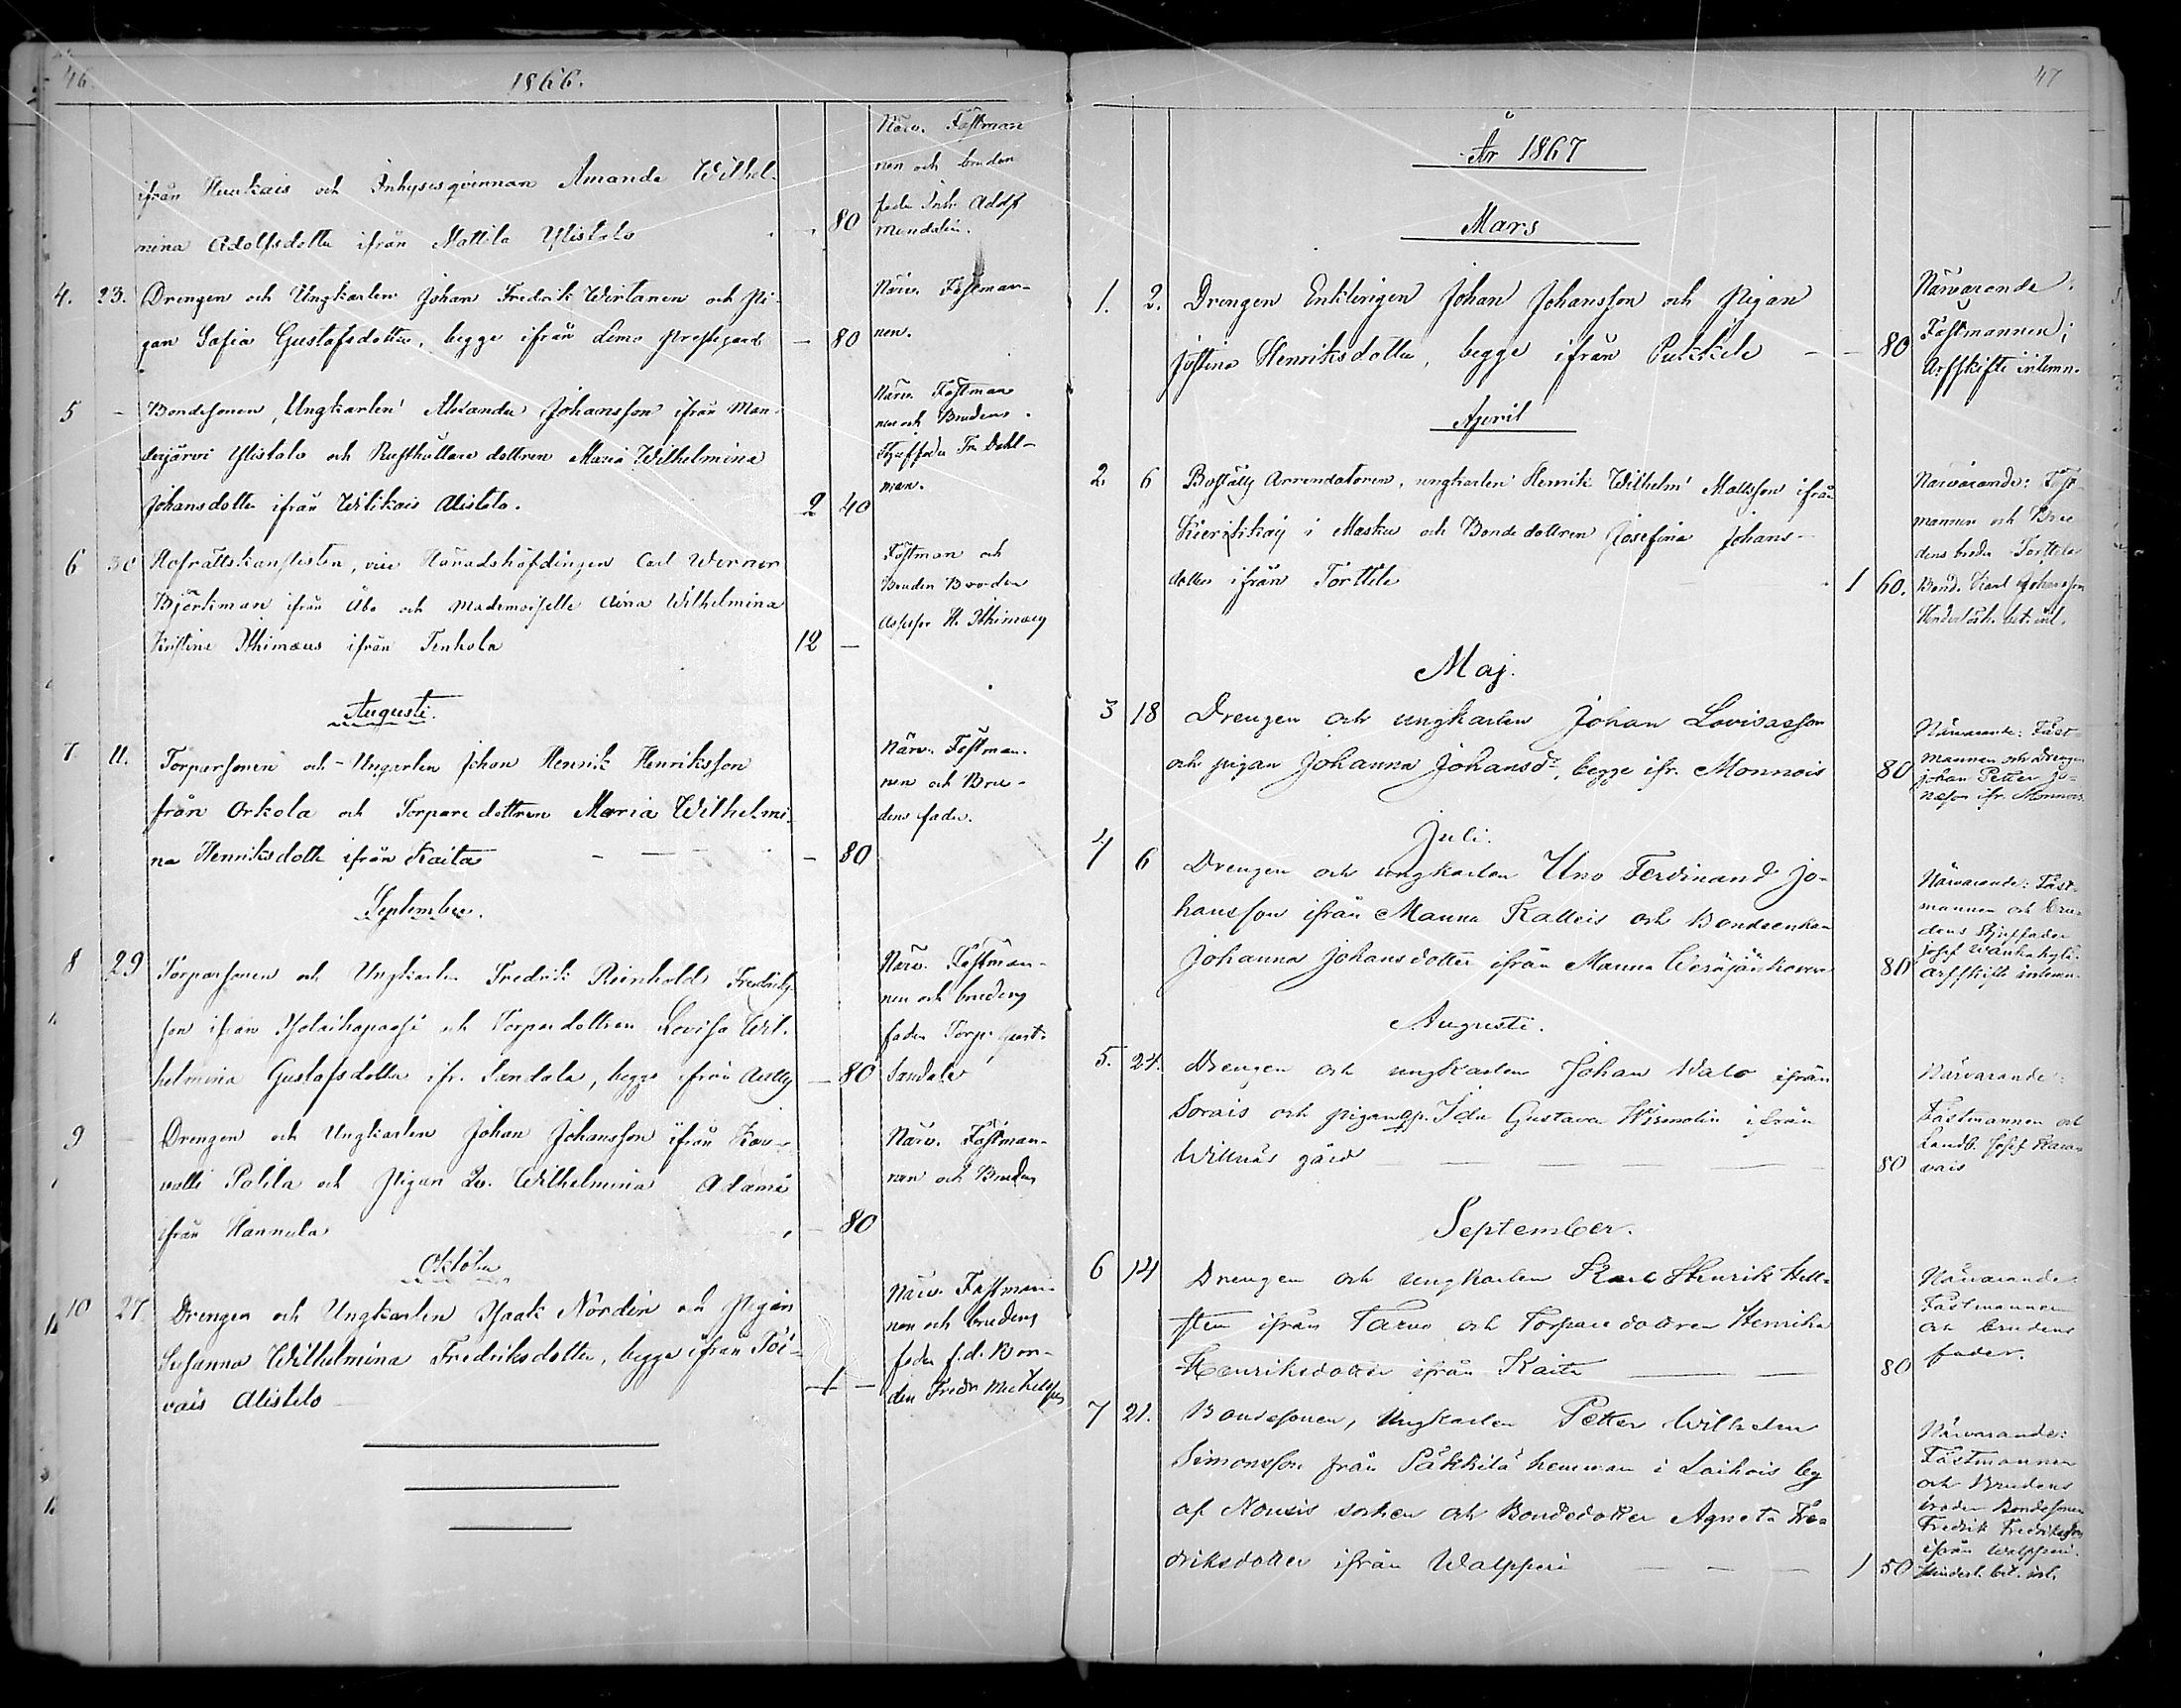 46.
1866.
ifrån Hurkais och Inhysesqvinnan Amanda Wilhel-
mina Adolfsdotter ifrån Mattila Ylistalo - 80
Närv. Fästman
nen och brudens
fader Inh. Adolf
Mendelin.
4. 23. Drengen och Ungkarlen Johan Fredrik Wirtanen och Pi-
gan Sofia Gustafsdotter, begge ifrån Lemo Prestgård - 80
Närv. Fästman-
nen.
5 - Bondesonen, Ungkarlen Alexander Johansson ifrån Man-
nerjärvi Ylistalo och Rusthållare dottren Maria Wilhelmina
Johansdotter ifrån Wilikais Alistalo. 2 40
Närv. Fästman
nen och Brudens
Styffader Fr. Dahl-
man.
6 30 Hofrättskanslisten, vice Häradshöfdingen Carl Werner
Björkman ifrån Åbo och Mademoiselle Aina Wilhelmina
Kristina Ithimæus ifrån Tenhola 12 -
Fästman och
Bruden Broder
Assessor H. Ithimæus
Augusti.
7. 11. Torparsonen och Ungkarlen Johan Henrik Henriksson
från Orkola och Torpare dottren Maria Wilhelmi-
na Henriksdotter ifrån Kaita - 80
Närv. Fästman-
nen och Bru-
dens fader.
September.
8 29 Torparsonen och Ungkarlen Fredrik Reinhold Fredriks-
son ifrån och Torpardottren Lovisa Wil-
helmina Gustafsdotter ifr. Sandala, begge ifrån - 80
Närv. Fästman-
nen och brudens
fader Torp. Gust.
Sandale
9 - Drengen och Ungkarlen Johan Johansson ifrån Kor-
valli Palila och Pigan Wilhelmina
ifrån Hannula - 80
Närv. Fästman-
nen och Brudens
Oktober
10 27. Drengen och Ungkarlen Isaak Nordin och Pigan
Susanna Wilhelmina Fredriksdotter, begge ifrån Toi-
vais Alistalo 1 -
Närv. Fästman-
nen och brudens
fader f.d. Bon-
den Fredr. Michelsson
47
År 1867
Mars
1. 2. Drengen Enklingen Johan Johansson och Pigan
Justina Henriksdotter, begge ifrån Pukkila - - 80
Närvarande:
Fästmannen;
Arfskifte inlemn.
April
2. 6 Boställs Arrendatoren, ungkarlen Henrik Wilhelm Mattsson ifrån
i Masku och Bonde dottren Josefina Johans-
dotter ifrån Torttila 1 60.
Närvarande: Fäst-
mannen och Bru
dens broder Torttila
Bond. Karl Johansson
Hinderlösh. bet. inl.
Maj.
3 18 Drengen och ungkarlen Johan Lovisasson
och pigan Johanna Johansdr, begge ifr. Monnois 80
Närvarande: Fäst-
mannen och Drengen
Johan Petter Jo-
nasson ifr. Monnois
Juli.
4 6 Drengen och ungkarlen Uno Ferdinand Jo-
hansson ifrån Manna Kalleis och Bondeenkan
Johanna Johansdotter ifrån Manna 80
Närvarande: Fäst-
mannen och bru-
dens Styffader
Josef
Arfskifte inlemn.
Augusti.
5. 24. Drengen och ungkarlen Johan Walo ifrån
Sorais och pigan Ida Gustava ifrån
Willnäs gård 80
Närvarande:
Fästmannen och
Landb. Josef
September.
6 14 Drengen och ungkarlen Karl Henrik Hell-
sten ifrån Tarvo och Torparedottren Henrika
Henriksdotter ifrån Kaita 80
Närvarande:
Fästmannen
och brudens
fader.
7 21. Bondesonen, Ungkarlen Petter Wilhelm
Simonsson från Säkkilä hemman i Laihois by
af Nousis socken och Bondedotter Agneta Fre-
driksdotter ifrån Walpperi 1 50
Närvarande:
Fästmannen
och Brudens
broder Bondesonen
Fredrik Fredriksson
ifrån Walpperi.
Hinderl. bet. inl.